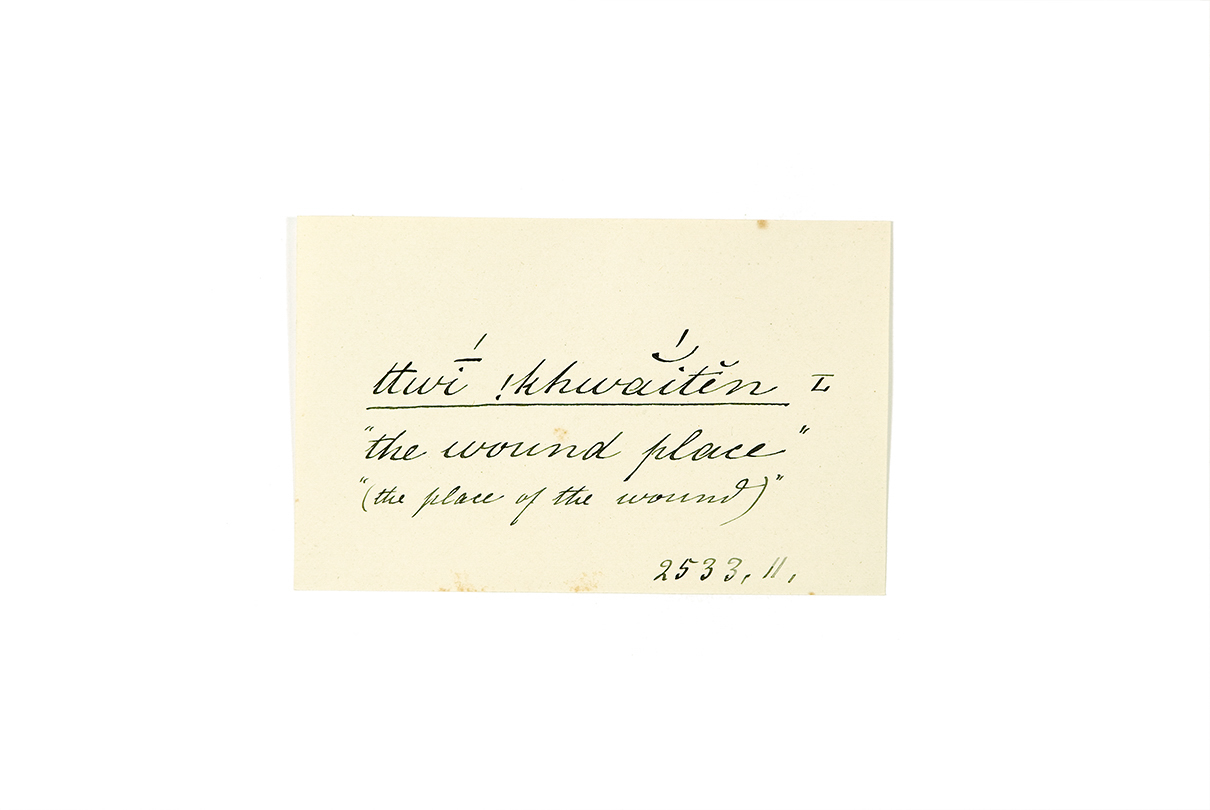 ttwī́ !khwā̆́ĭtĕn L
"the wound place"
"(the place of the wound)"
2533. 11.